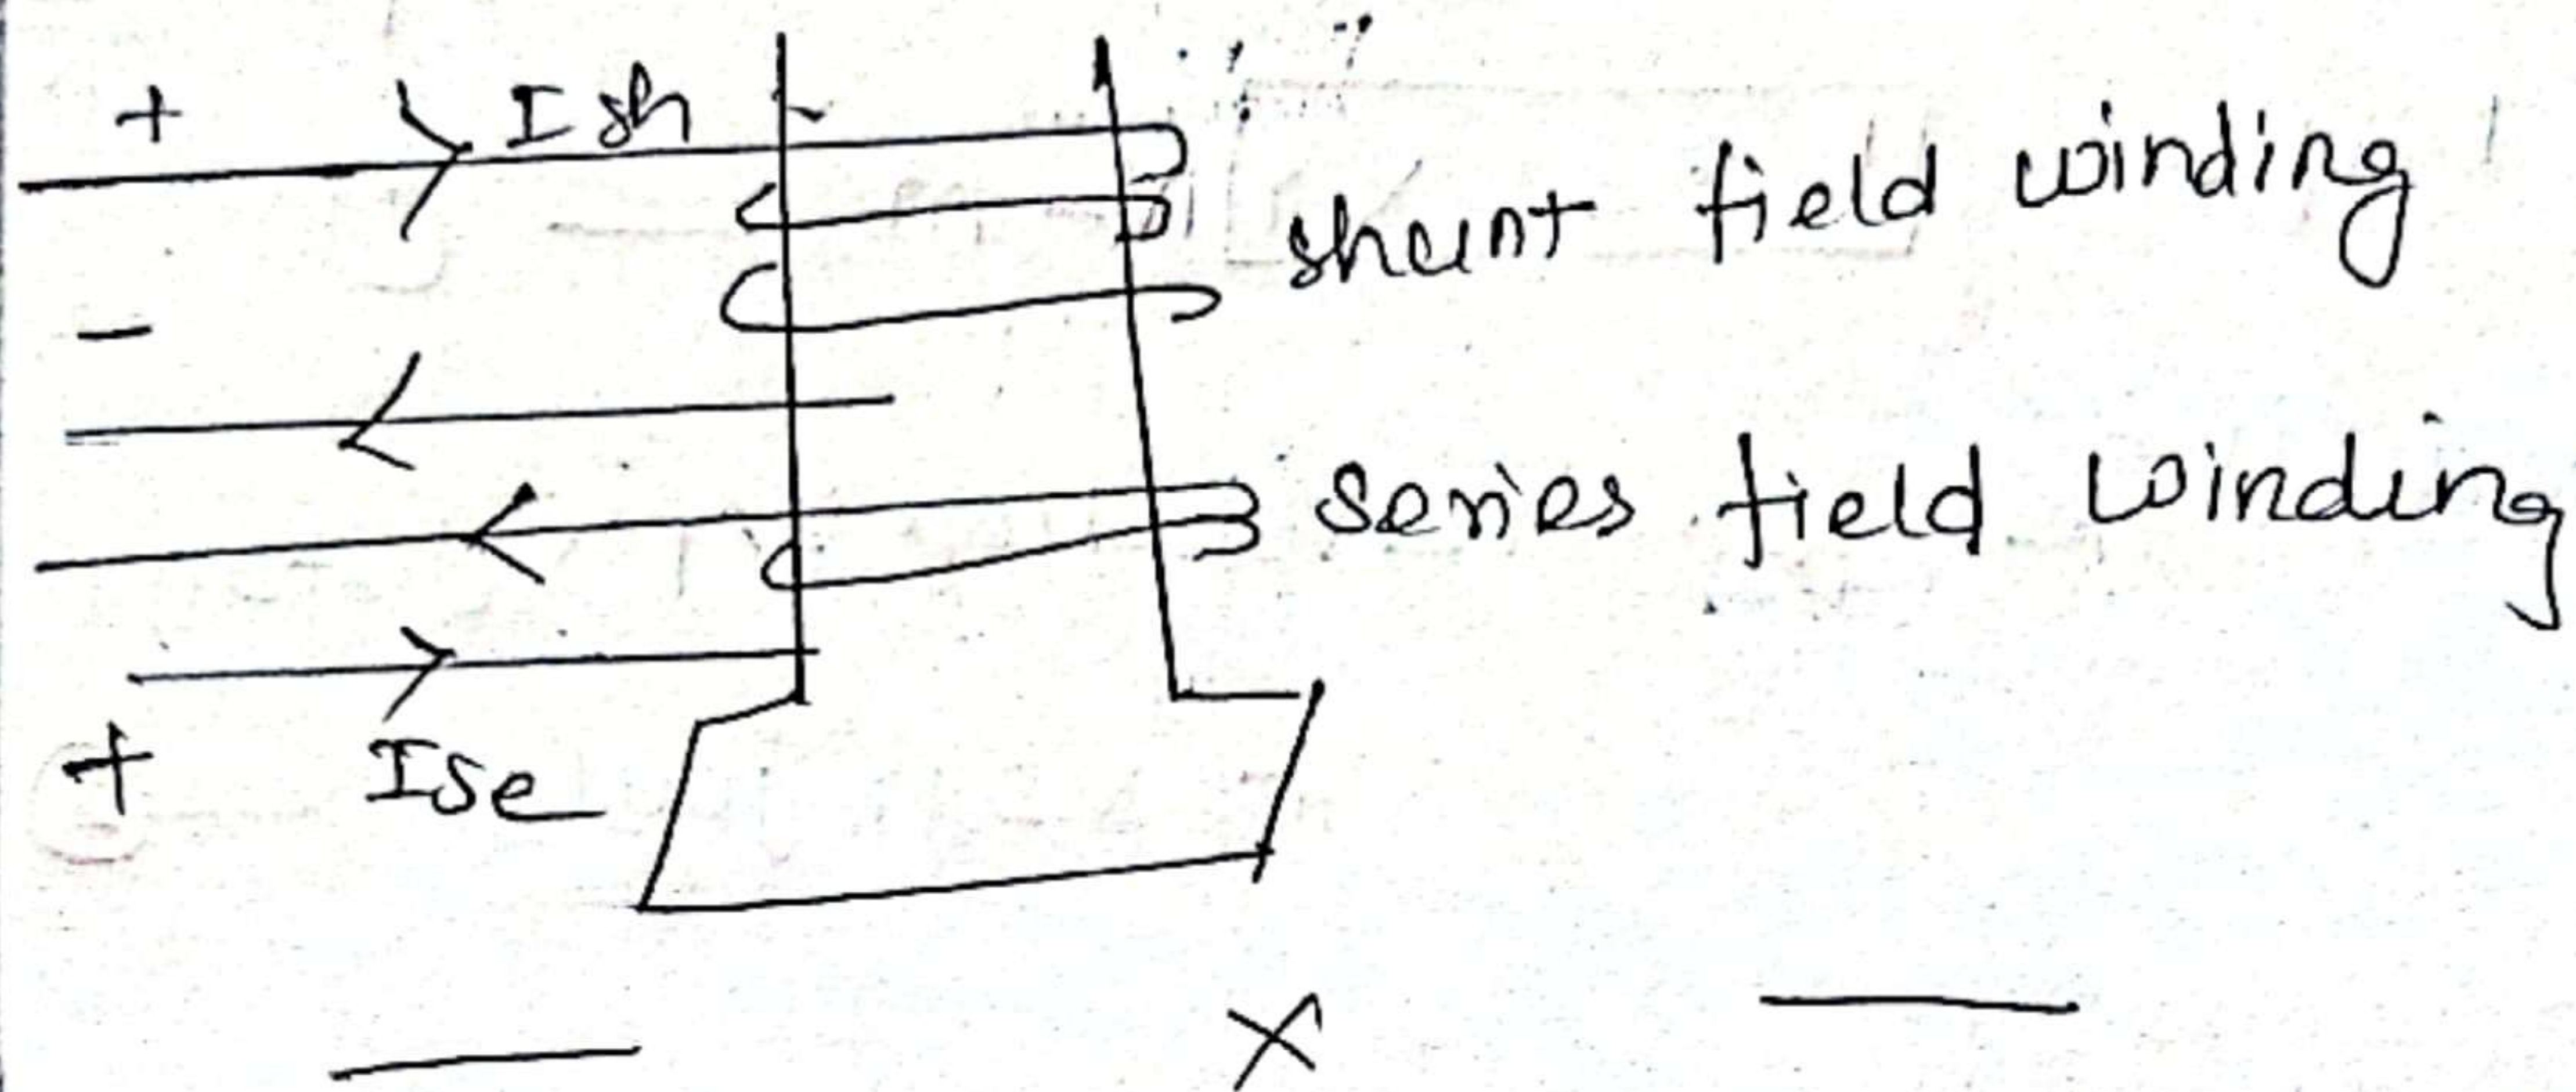 + Ish
shunt field winding
-
series field winding
+ Ise
— x —